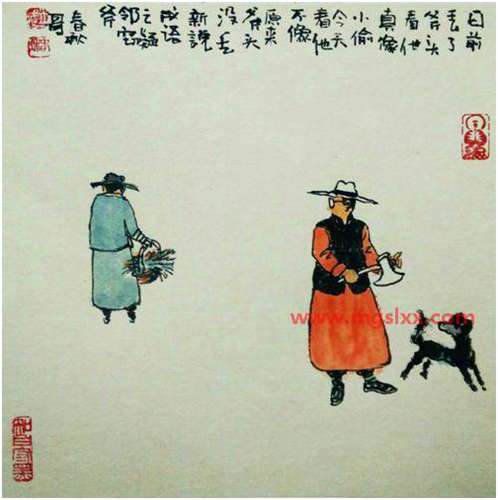 日前
丢了
斧头
看他
真像
小偷
今天
看他
不像
原来
斧头
没丢
新说
成语
之疑
邻窃
斧
春秋
哥
www.mgslxx.com